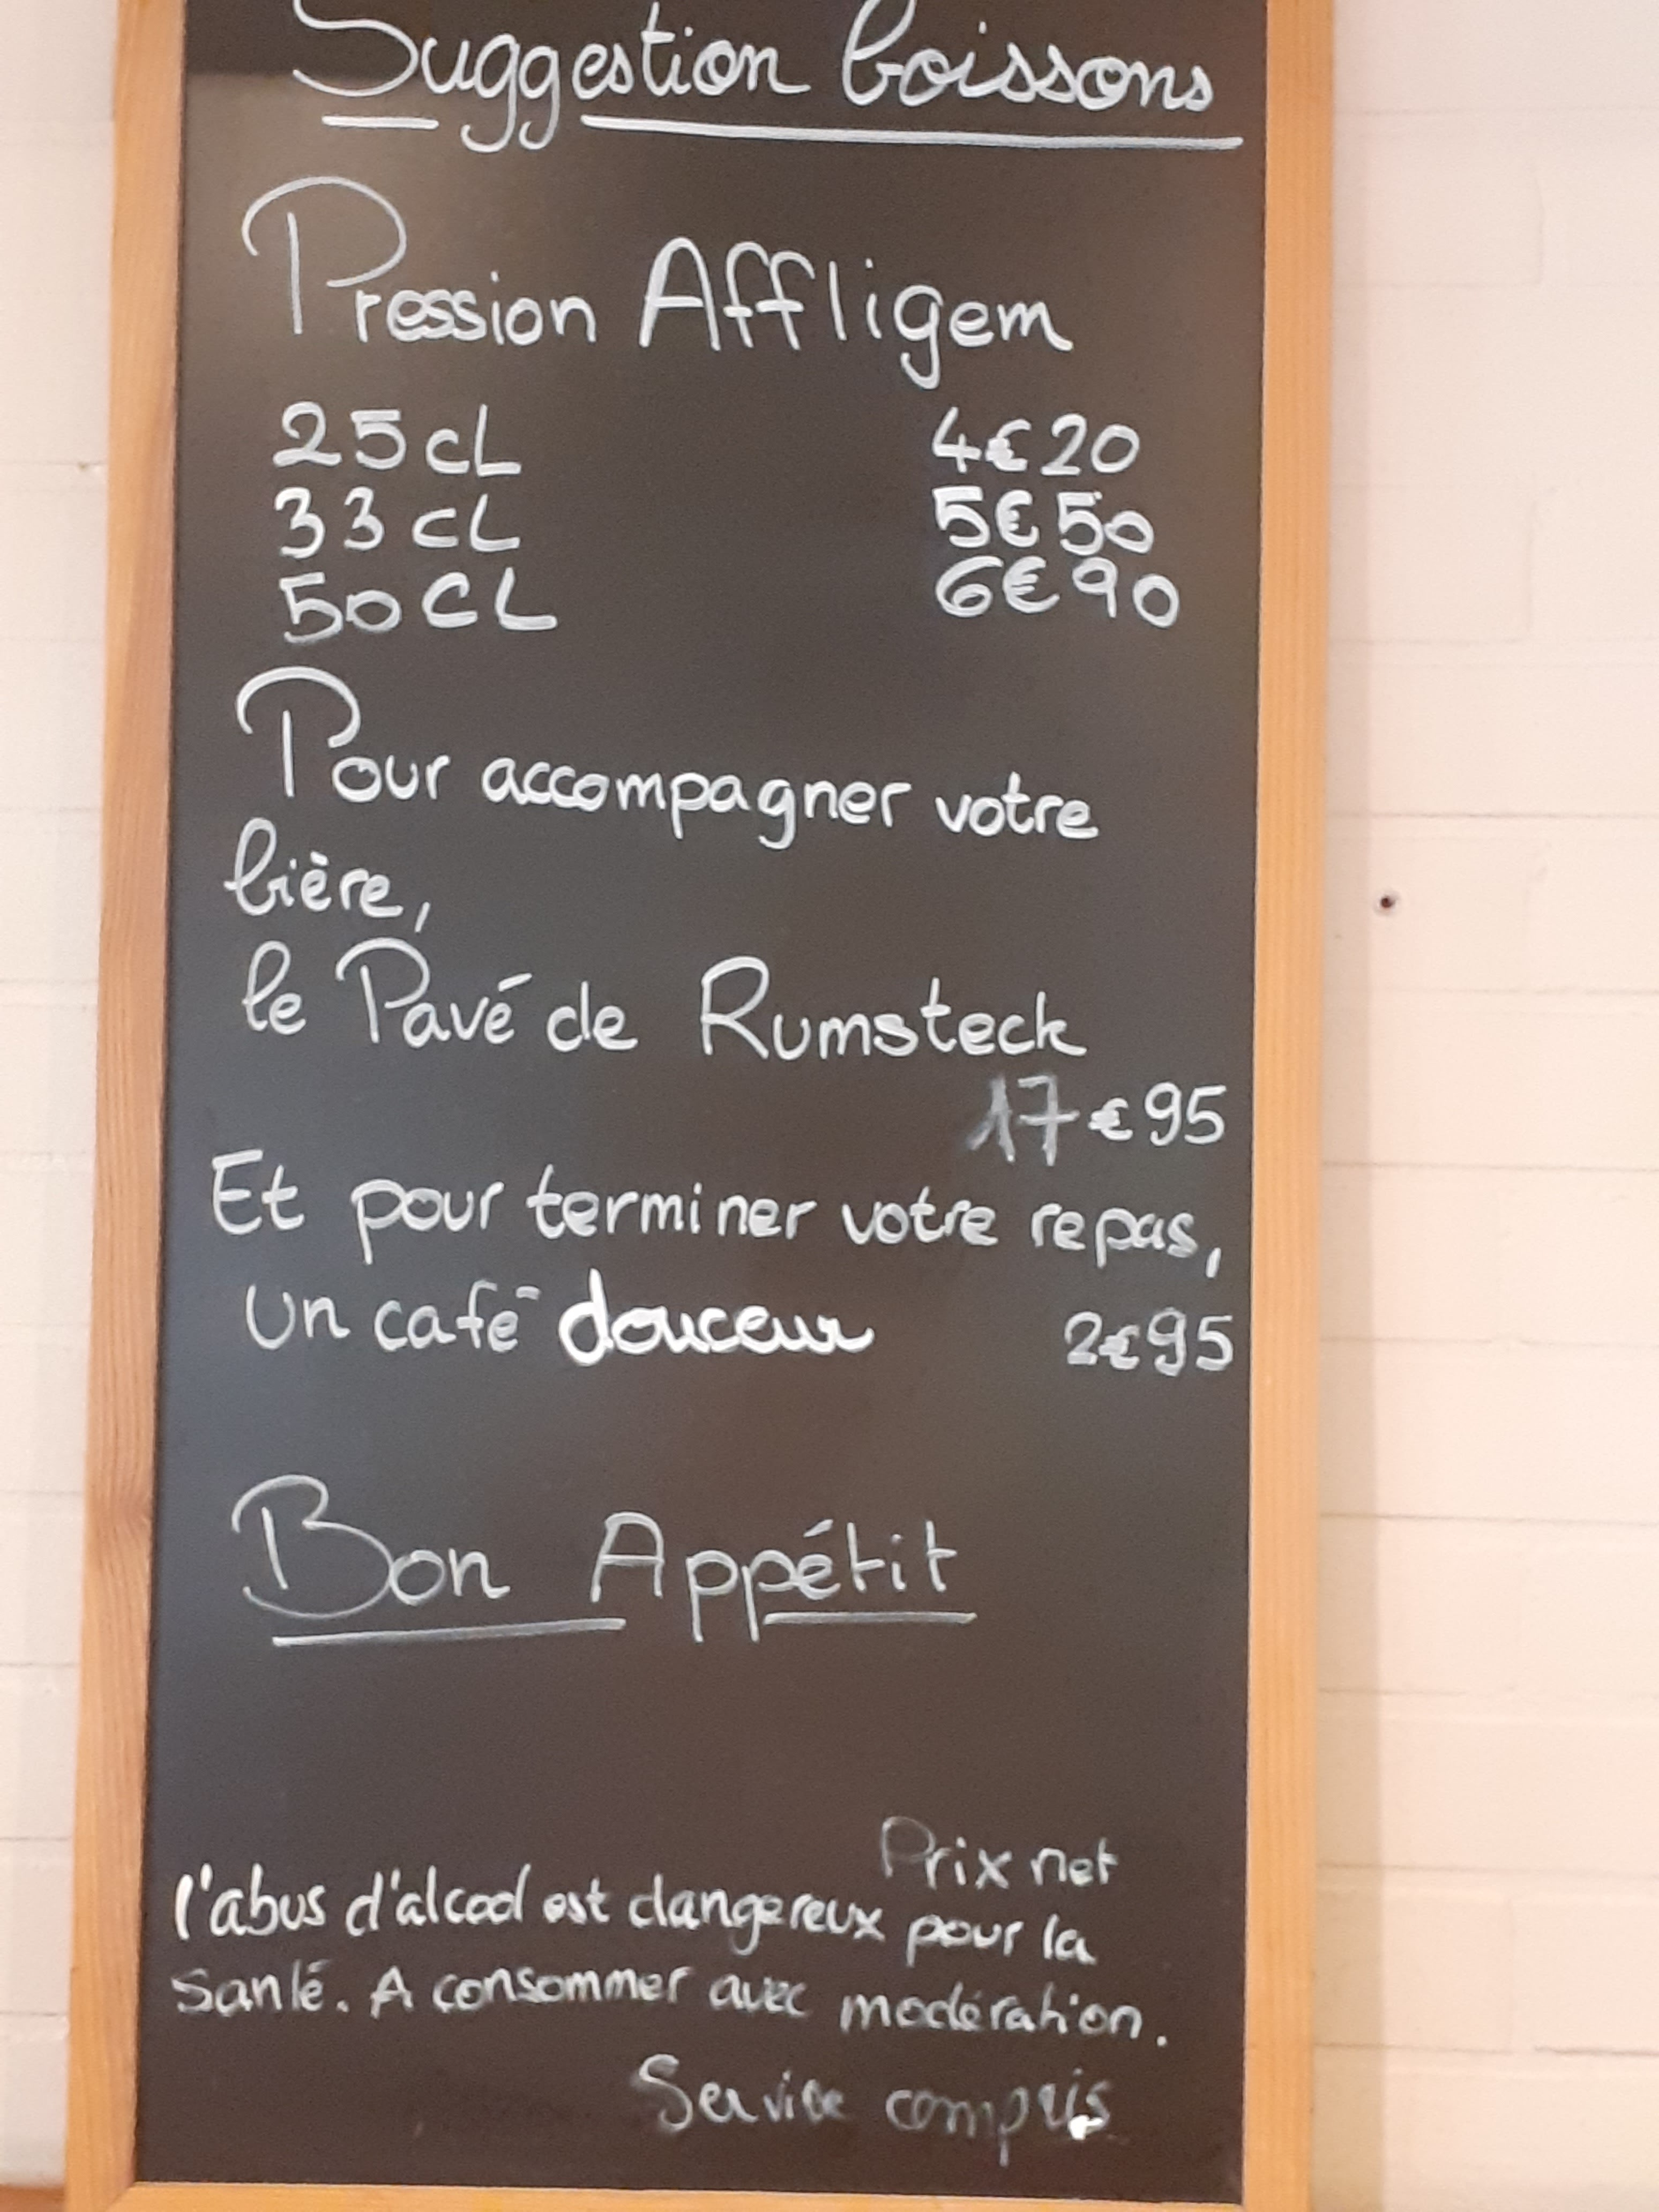 Suggestion boissons
Pression Affligem
25cL 4€20
33cL 5€50
50CL 6€90
Pour accompagner votre
bière,
le Pavé de Rumsteck
17€95
Et pour terminer votre repas,
un café douceur 2€95
Bon Appétit
Prix net
l'abus d'alcool est dangereux pour la
santé. A consommer avec modération.
Service compris